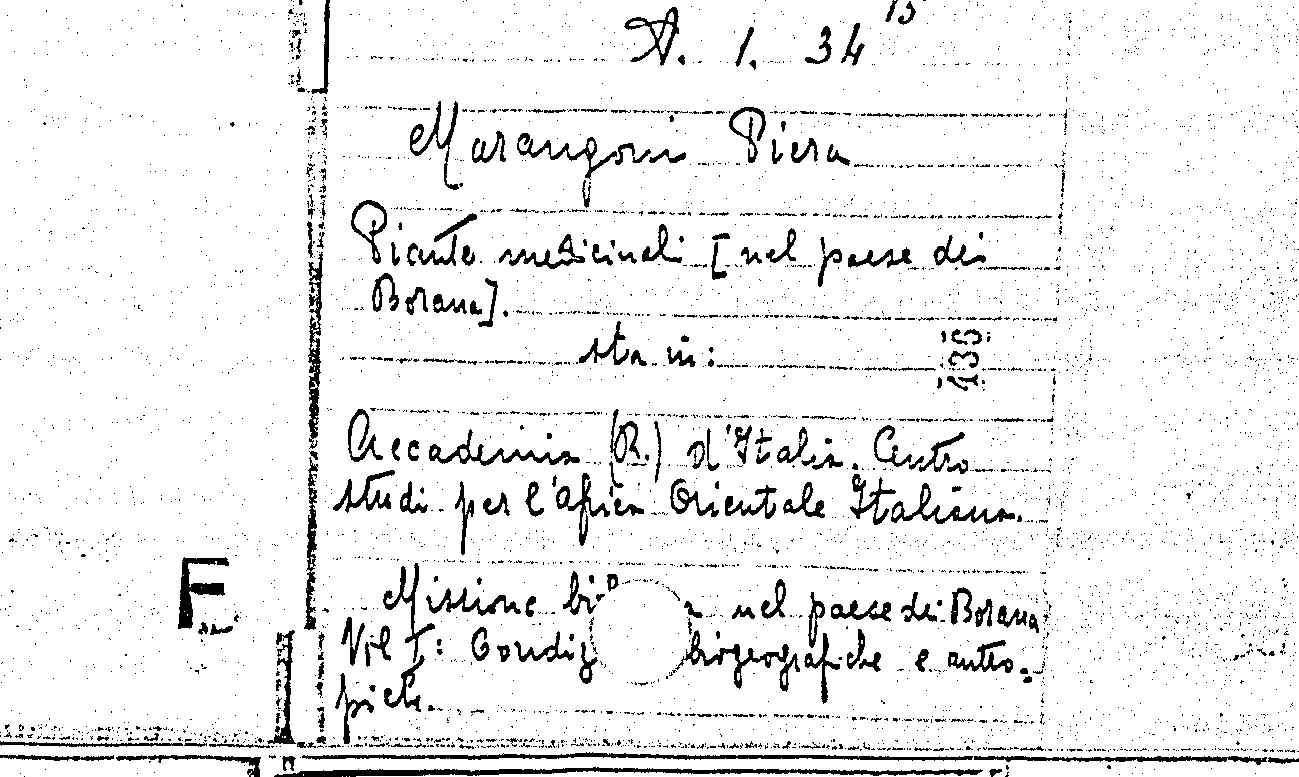 A. 1. 34 15
Marangoni Piera
Piante medicinali [nel paese dei
Borana].
sta in:
135
Accademia (R.) d'Italia. Centro
studi per l'Africa Orientale Italiana.
F
Missione nel paese dei Borana
Vol I: biogeografiche e antro-
piche.